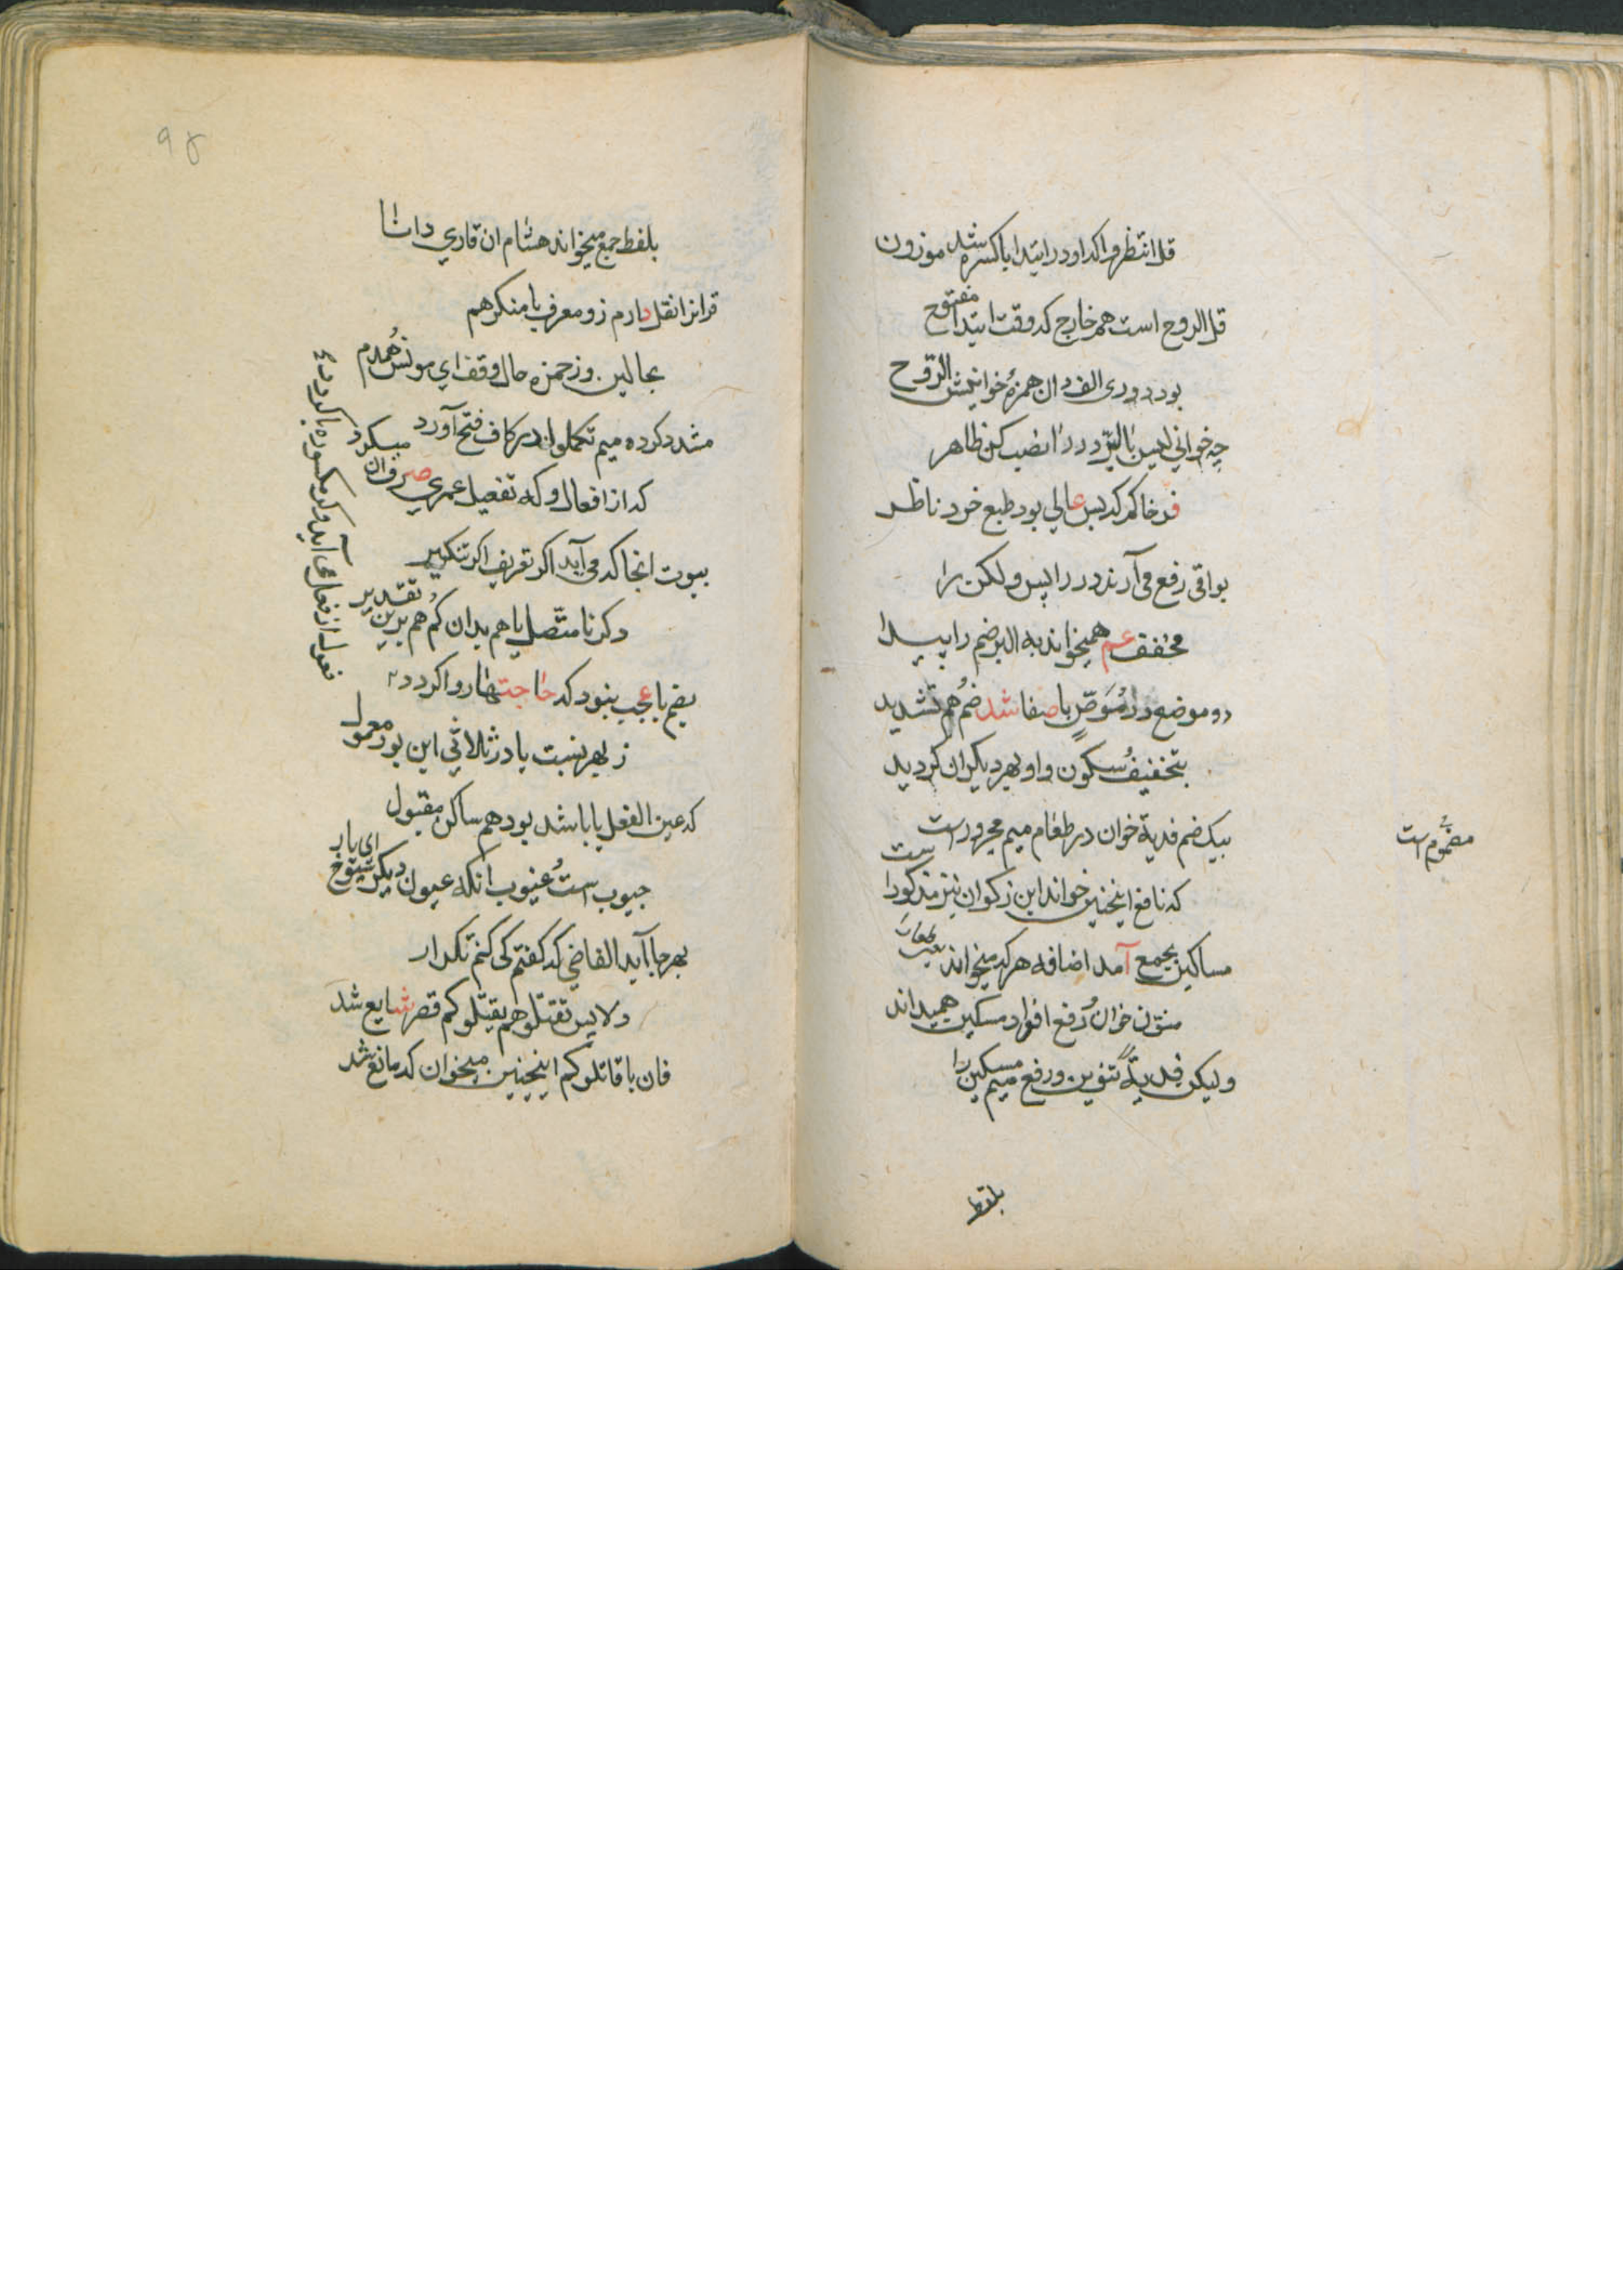 قل انتظروا کدا و در ابتدا با کسره شد موزون
قل الروح است هم خارج که وقت ابتدا مفتوح
بود در وی الف دان همزهٔ خوانیش الروح
چه خوانی لیس البر در را نصب کن ظاهر
فرخاکم که بس عالی بود طبع خرد ناظر
بواقی رفع می آرند در را لیس ولکن را
مخفف عم همیخواند به البر ضم را پیدا
دو موضع دان موص با صفا شد ضم هم تشدید
بتخفیف سکون واو بهر دیکران کردید
بیک ضم فدیة خوان در طعام میم مجرور است
مضموم است
که نافع اینچنین خواند ابن ذکوان نیز مذکور است
مساکین بجمع آمد اضافه هر که میخواند
منون خوان رفع افراد مسکین همیداند
ولیکن فدیة تنوین ورفع میم مسکین را
بلفظ
۹۸
بلفظ جمع میخواند هشام ان قاری دانا
قران را نقل دارم زو معرف با منکر هم
بحالین وز حمزه حال وقف ای مونس همدم
مشدد کرده میم تکملوا اندر کاف فتح آورد
که از افعال وکه تفعیل عمری صرف ان میکرد
بیوت انجا که می آید اکر تعریف اکر تنکیر
دکر نا متصل یا هم بدان کم هم برین تقدیر
بضم با عجب نبود که حاجتها روا کردد
ز بهر نسبت یا در ثلاثی این بود معمول
که عین الفعل یا باشد بود هم ساکن مقبول
جیوب است عیوب انکه عیون دیکر شیوخ ای یار
بهر جا آید الفاضی که کفتم کی کنم تکرار
ولا پس تقتلوهم یقتلوکم قصر شایع شد
فان با قاتلوکم اینچنین میخوان که مانع شد